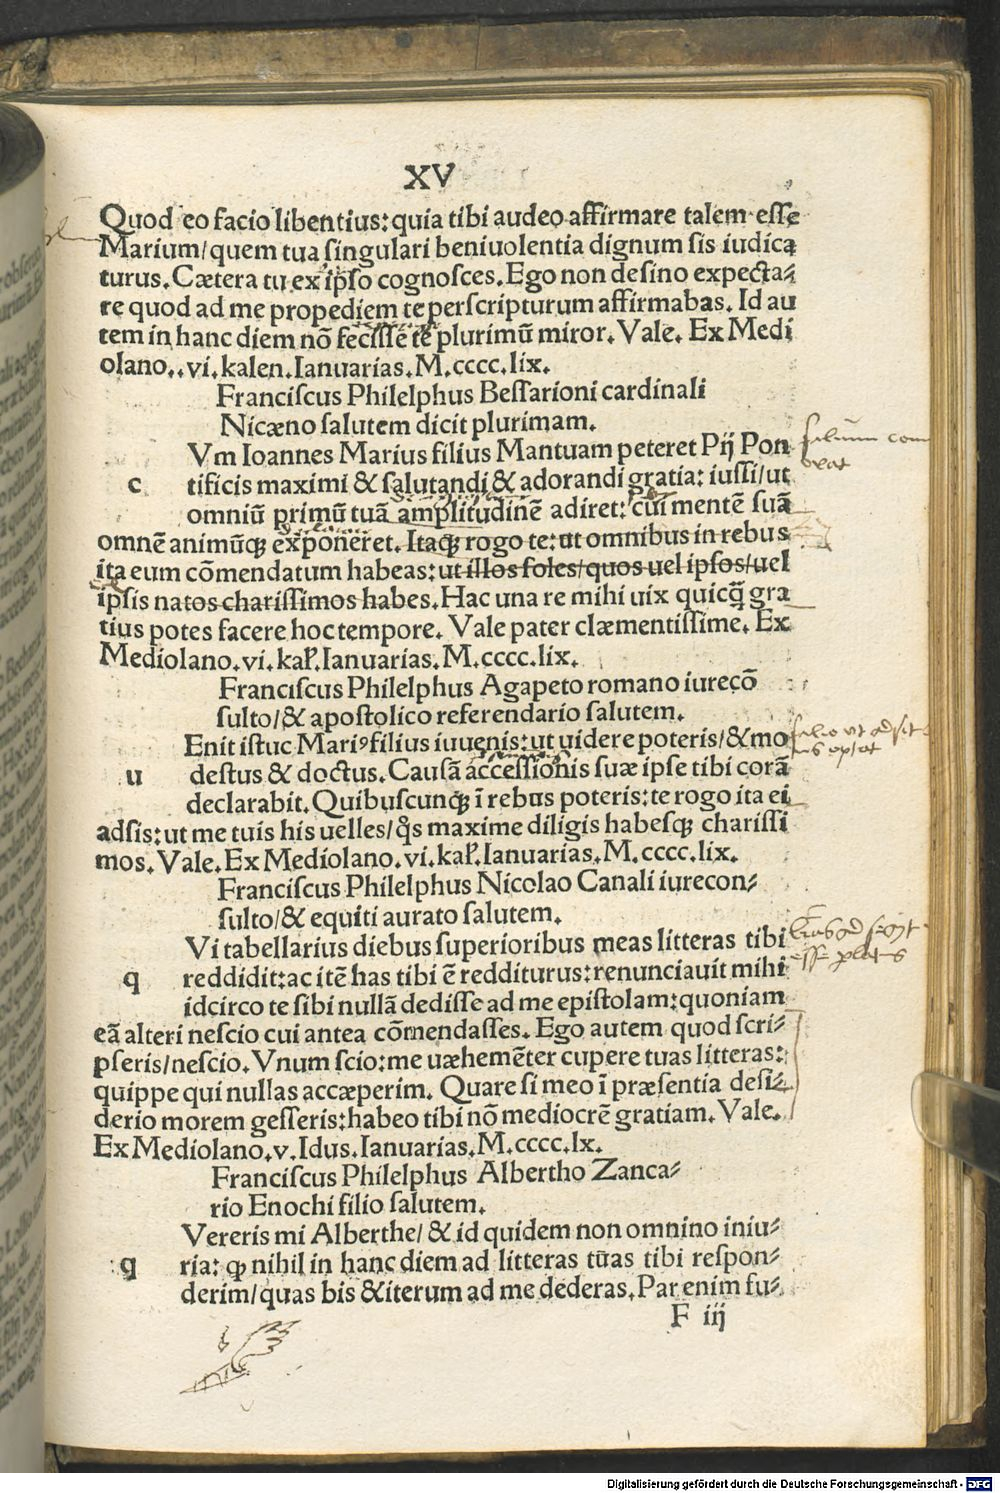 XV
Quod eo facio libentius: quia tibi audeo affirmare talem esse
Marium/quem tua singulari beniuolentia dignum sis iudica
turus. Cætera tu ex ipso cognosces. Ego non desino expecta⸗
re quod ad me propediem te perscripturum affirmabas. Id au
tem in hanc diem nō fecisse te plurimū miror. Vale. Ex Medi
olano..vi.kalen.Ianuarias.M.cccc.lix.
Franciscus Philelphus Bessarioni cardinali
Nicæno salutem dicit plurimam.
Vm Ioannes Marius filius Mantuam peteret Pij Pon
c tificis maximi & salutandi & adorandi gratia: iussi/ut
omniū primū tuā amplitudinē adiret: cui mentē suā
omnē animūq; exponeret. Itaq; rogo te: ut omnibus in rebus
ita eum cōmendatum habeas: ut illos soles/quos uel ipsos/uel
ipsis natos charissimos habes. Hac una re mihi uix quicq̄ gra
tius potes facere hoc tempore. Vale pater clæmentissime. Ex
Mediolano.vi.kal̕.Ianuarias.M.cccc.lix.
Franciscus Philelphus Agapeto romano iurecō
sulto/& apostolico referendario salutem.
Enit istuc Mariꝰ filius iuuenis: ut uidere poteris/& mo
u destus & doctus. Causā accessionis suæ ipse tibi corā
declarabit. Quibuscunq; ī rebus poteris: te rogo ita ei
adsis: ut me tuis his uelles/q̊s maxime diligis habesq; charissi
mos. Vale. Ex Mediolano.vi.kal̕.Ianuarias.M.cccc.lix.
Franciscus Philelphus Nicolao Canali iurecon⸗
sulto/& equiti aurato salutem.
Vi tabellarius diebus superioribus meas litteras tibi
q reddidit: ac itē has tibi ē redditurus: renunciauit mihi
idcirco te sibi nullā dedisse ad me epistolam: quoniam
eā alteri nescio cui antea cōmendasses. Ego autem quod scri⸗
pseris/nescio. Vnum scio: me uæhemēter cupere tuas litteras:
quippe qui nullas accæperim. Quare si meo ī præsentia desi⸗
derio morem gesseris: habeo tibi nō mediocrē gratiam. Vale.
Ex Mediolano.v.Idus.Ianuarias.M.cccc.lx.
Franciscus Philelphus Albertho Zanca⸗
rio Enochi filio salutem.
Vereris mi Alberthe/& id quidem non omnino iniu⸗
q ria: ꝙ nihil in hanc diem ad litteras tuas tibi respon⸗
derim/quas bis & iterum ad me dederas. Par enim fu⸗
F iij
Digitalisierung gefördert durch die Deutsche Forschungsgemeinschaft - DFG